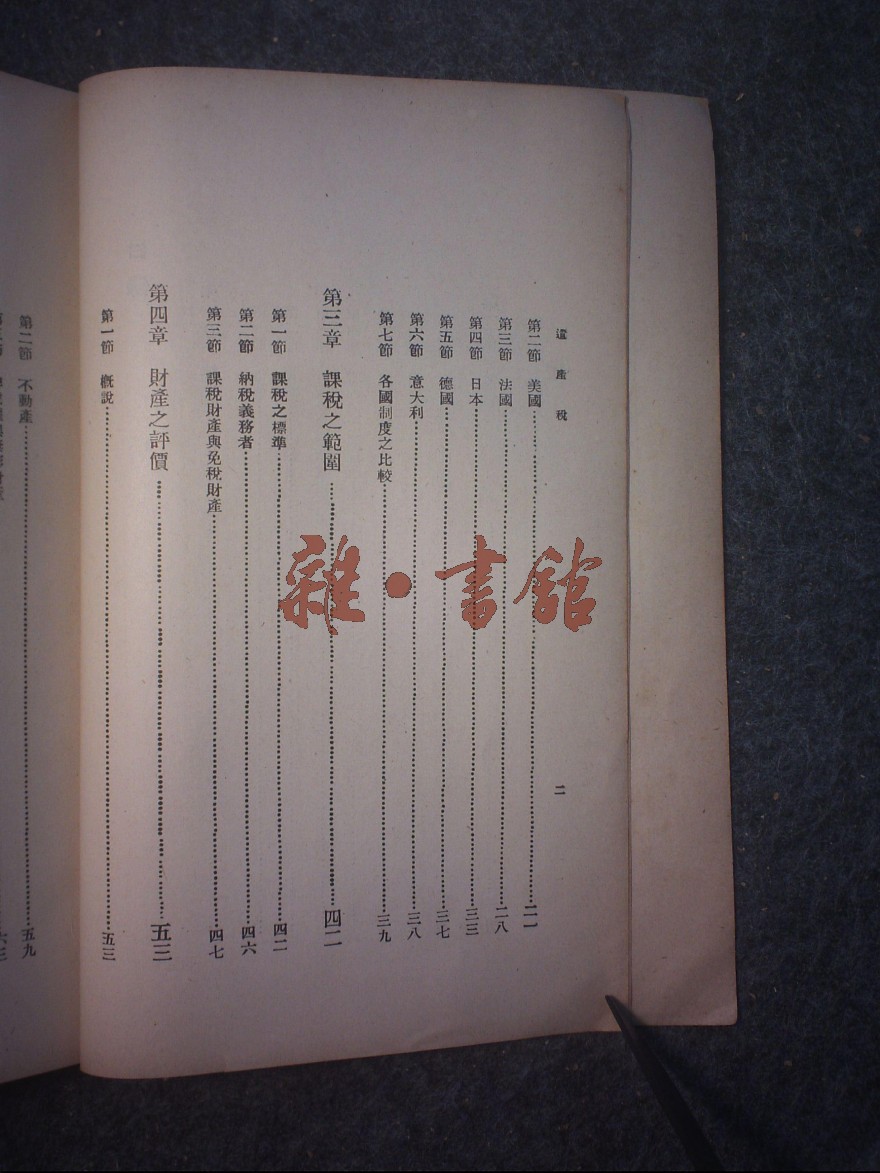 遺產稅
二
第二節 美國 二一
第三節 法國 二八
第四節 日本 三三
第五節 德國 三七
第六節 意大利 三八
第七節 各國制度之比較 三九
第三章 課稅之範圍 四二
第一節 課稅之標準 四二
第二節 納稅義務者 四六
第三節 課稅財產與免稅財產 四七
第四章 財產之評價 五三
第一節 概說 五三
第二節 不動產 五九
雜·書館